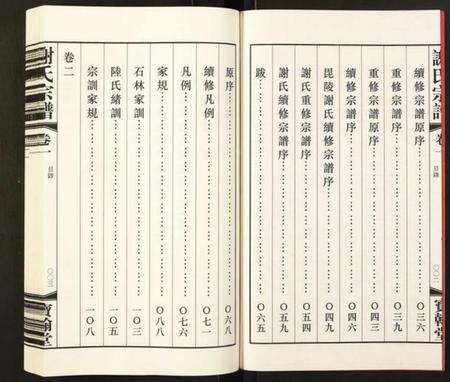 謝氏宗譜
卷一
目錄
續修宗譜原序 〇三六
重修宗譜序 〇三九
重修宗譜原序 〇四三
續修宗譜序 〇四六
毘陵謝氏續修宗譜序 〇四九
謝氏重修宗譜序 〇五四
謝氏續修宗譜序 〇五九
跋 〇六五
寶翰堂
原序 〇六八
續修凡例 〇七一
凡例 〇七六
家規 〇八八
石林家訓 一〇三
陸氏緒訓 一〇五
宗訓家規 一〇八
卷二
謝氏宗譜
卷一
目錄
〇〇三
寶翰堂